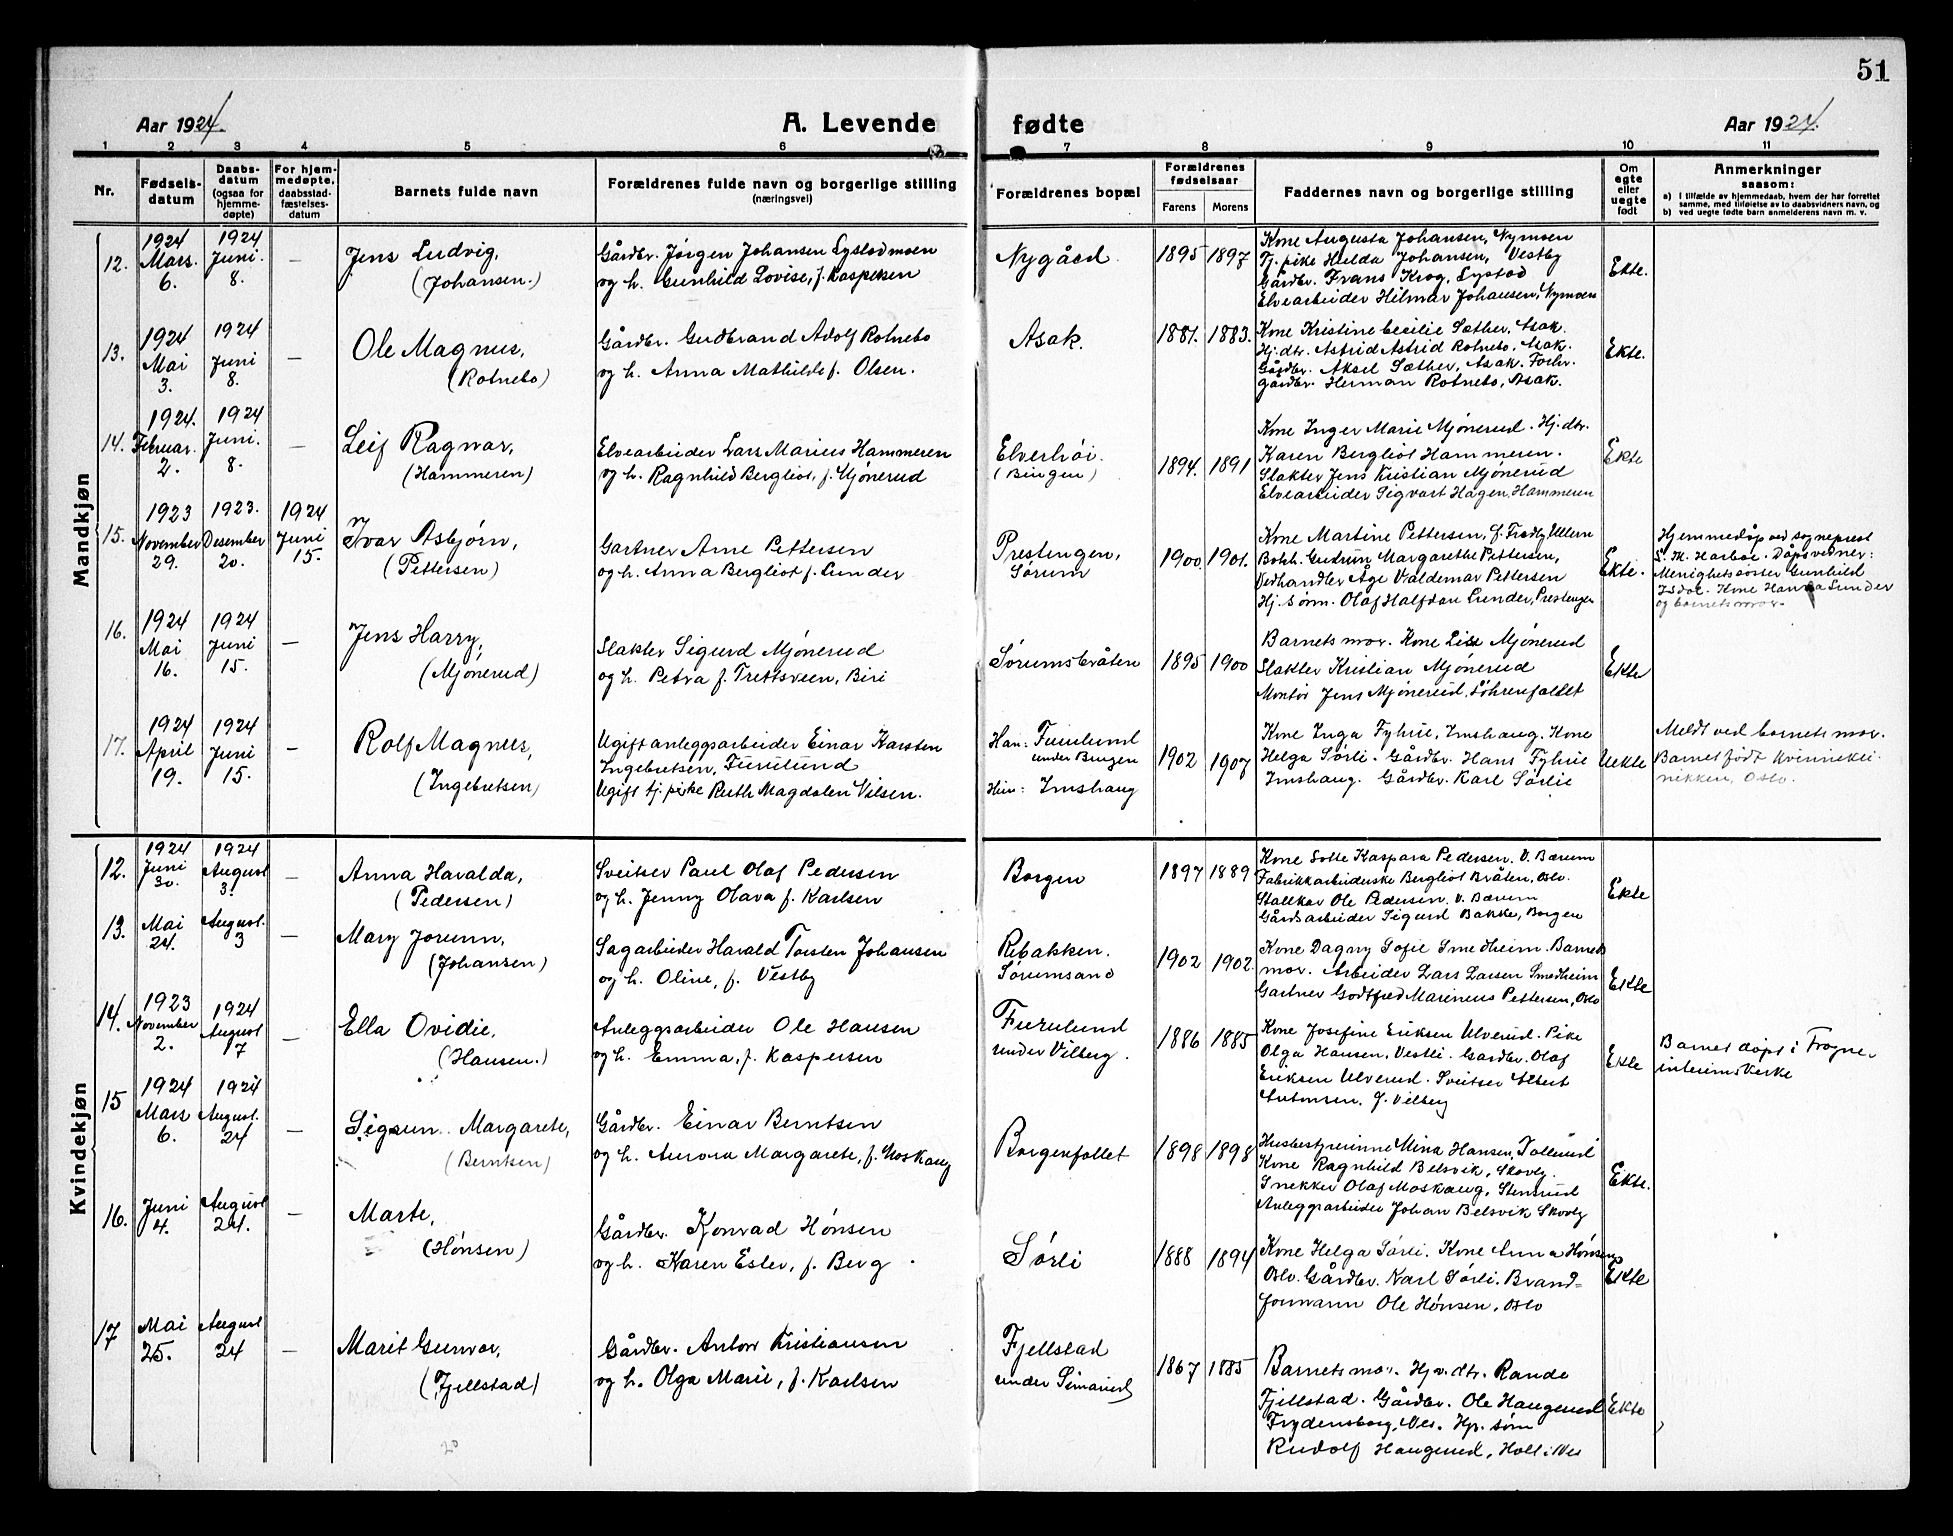 51
Aar 1924.
A. Levende fødte
Aar 1924.
1 2 3 4 5 6 7 8 9 10 11
Nr.
Fødsels-
datum
Daabs-
datum
(ogsaa for
hjemme-
døpte)
For hjem-
medøpte,
daabsstad-
fæstelses-
datum
Barnets fulde navn
Forældrenes fulde navn og borgerlige stilling
(næringsvei)
Forældrenes bopæl
Forældrenes
fødselsaar
Farens
Morens
Faddernes navn og borgerlige stilling
Om
egte
eller
uegte
født
Anmerkninger
saasom:
a) I tilfælde av hjemmedaab, hvem der har forrettet
samme, med tilføielse av to daabsvidners navn, og
b) ved uegte fødte barn anmelderens navn m. v.
Mandkjøn
12.
1924
Mars.
6.
1924
Juni.
8.
—
Jens Ludvig,
(Johansen.)
Gårdbr. Jørgen Johansen Lystadmoen
og h. Gunhild Lovise, f. Kaspersen
Nygård
1895 1897
Kone Augusta Johansen, Nymoen
Tj. pike Helda Johansen, Vestby
Gårdbr. Frans Krog, Lystad
Elvearbeider Hilmar Johansen, Nymoen
Ekte.
13.
1924
Mai
3.
1924
Juni
8.
—
Ole Magnus,
(Rotnebo)
Gårdbr. Gudbrand Adolf Rotnebo
og h. Anna Mathilde f. Olsen.
Asak.
1881. 1883.
Kone Kristine Cecilie Sæther, Asak.
Hj. dtr. Astrid Astrid Rotnebo, Asak.
Gårdbr. Aksel Sæther, Asak. Forhv.
gårdbr. Herman Rotnebo, Asak.
Ekte.
14.
1924.
Februar.
2.
1924
Juni.
8.
—
Leif Ragnar,
(Hammeren)
Elvearbeider Lars Marius Hammeren
og h. Ragnhild Bergliot, f. Mjønerud
Elverhøi.
(Bingen)
1894. 1891
Kone Inger Marie Mjønerud. Hj. dtr.
Karen Bergliot Hammeren.
Slakter Jens Kristian Mjønerud
Elvearbeider Sigvart Hagen, Hammeren
Ekte
15.
1923
November
29.
1923.
Desember
20.
1924
Juni
15.
Ivar Asbjørn,
(Pettersen)
Gartner Arne Pettersen
og h. Anna Bergliot f. Lunder
Prestengen,
Sørum
1900. 1901.
Kone Martine Pettersen,
Bokh. Gudrun Margarethe Pettersen,
Vedhandler Åge Valdemar Pettersen
Hj. sønn. Olaf Halfdan Lunder, Prestengen
Ekte.
Hjemmedøp ved sogneprest
S. M. Harboe. Døpsvidner:
Menighetssøster Gunhild
Kone Hanna Lunder
og barnets mor.
16.
1924
Mai
16.
1924
Juni
15.
—
Jens Harry,
(Mjønerud)
Slakter Sigurd Mjønerud
og h. Petra f. Trettsveen, Biri
Sørumsbråten
1895 1900
Barnets mor. Kone Lise Mjønerud
Slakter Kristian Mjønerud
Montør Jens Mjønerud,
Ekte
17.
1924
April
19.
1924
Juni
15.
—
Rolf Magnus,
(Ingebretsen)
Ugift anleggsarbeider Einar Karsten
Ingebretsen, Furulund
Ugift tj. pike Ruth Magdalen Nilsen.
Han: Furulund
under Bingen
Hun: Imshaug
1902 1907
Kone Inga Fylrie, Imshaug. Kone
Helga Sørli. Gårdbr. Hans Fylrie
Imshaug. Gårdbr. Karl Sørlie
Uekte
Meldt ved barnets mor.
Barnet født Kvinnekli-
nikken, Oslo.
Kvindekjøn
12.
1924
Juni
30.
1924
August
3.
—
Anna Haralda,
(Pedersen)
Sveitser Paul Olaf Pedersen
og h. Jenny Olava f. Karlsen
Borgen
1897 1889
Kone Lotte Kaspara Pedersen. V. Bærum
Fabrikkarbeiderske Bergliot Bråten, Oslo.
Stallkar Ole Pedersen. V. Bærum
Gårdsarbeider Sigurd Bakke, Borgen
Ekte
13.
Mai
24.
August.
3
—
Mary Jorunn,
(Johansen)
Sagarbeider Harald Torsten Johansen
og h. Oline, f. Vestby
Rebakken.
Sørumsand
1902 1902.
Kone Dagny Sofie Smedheim. Barnets
mor. Arbeider Lars Larsen Smedheim
Gartner Godtfred Marinius Pettersen, Oslo
Ekte
14.
1923
November
2.
1924
August
17
—
Ella Ovidie,
(Hansen.)
Anleggsarbeider Ole Hansen
og h. Emma, f. Kaspersen
Furulund
under Vilberg.
1886 1885
Kone Josefine Eriksen Ulverud. Pike
Olga Hansen, Vestli. Gårdbr. Olaf
Eriksen Ulverud. Sveitser Albert
Antonsen. Vilberg
Ekte
Barnet døpt i Frogner
interimskirke
15
1924
Mars
6.
1924
August.
24
—
Sigrun Margarete,
(Berntsen)
Gårdbr. Einar Berntsen
og h. Aurora Margarete, f. Moskaug
Borgenfallet
1898 1898
Husbestyrerinne Mina Hansen,
Kone Ragnhild Belsvik, Skovly.
Snekker Olaf Moskaug, Stensrud
Anleggsarbeider Johan Belsvik Skovly
Ekte.
16.
Juni
4.
August
24.
—
Marte,
(Hønsen)
Gårdbr. Konrad Hønsen
og h. Karen Ester, f. Berg
Sørli
1888 1894
Kone Helga Sørli. Kone Anna Hønsen,
Oslo. Gårdbr. Karl Sørli. Brand-
formann Ole Hønsen, Oslo
Ekte
17
Mai
25.
August
24
—
Marit Gunvor,
(Fjellstad)
Gårdbr. Anton Kristiansen
og h. Olga Marie, f. Karlsen
Fjellstad
under
1867 1885
Barnets mor. Hj. dtr. Rande
Fjellstad. Gårdbr. Ole Haugerud
Frydensborg, Nes. Hj. sønn
Rudolf Haugerud, Holt i Nes
Ekte
20